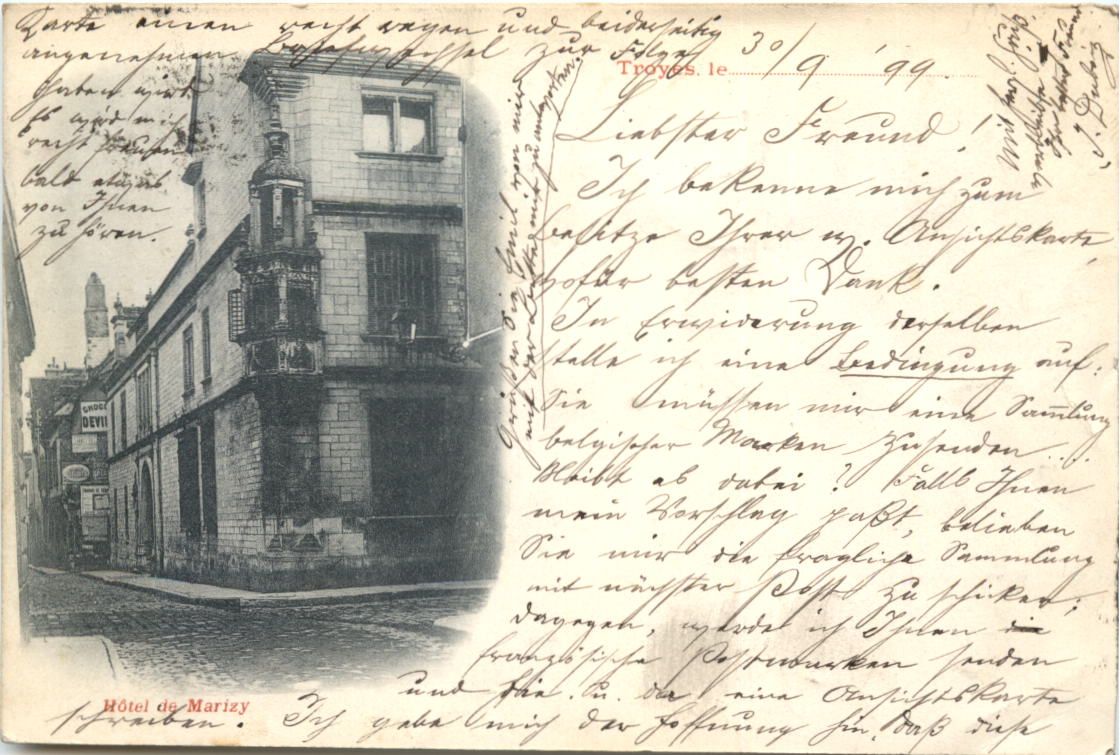 Troyes, le 30/9 '99.
Liebster Freund!
Ich bekenne mich zum
besitze Ihrer w. Ansichtskarte,
wofür besten Dank.
In Erwiderung derselben
stelle ich eine Bedingung auf:
Sie müssen mir eine Sammlung
belgischer Marken zusenden...
Bleibt es dabei? Falls Ihnen
mein Vorschlag paßt, belieben
Sie mir die fragliche Sammlung
mit nächster Post zu schicken;
dagegen, werde ich Ihnen die
französische Postmarken senden
und hie. u. da eine Ansichtskarte
schreiben. Ich gebe mich der Hoffnung hin, daß diese
Karte einen recht regen und beiderseitig
angenehmen zur Folge
haben wird
Es wird mich
recht freuen
bald etwas
von Ihnen
zu hören.
Mit herzl. Gruß
verbleibe
Ihr Freund
J.
CHOCO
DEVI
Hôtel de Marizy